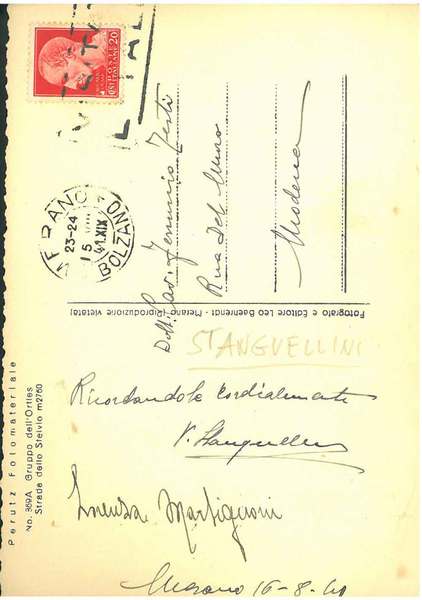 POSTE
ITALIANE
20
MERANO
BOLZANO
23-24
15
41.XIX
Dott. Cav. Testi
Rua Del Muro
Modena
Fotografo e Editore Leo Baehrendt - Merano (Riproduzione vietata)
STANGUELLINI
Ricordandola cordialmente
V. Stanguellini
Martignoni
Merano 16-8-41
Perutz Fotomateriale
No. 369A Gruppo dell'Ortles
Strada dello Stelvio m2760